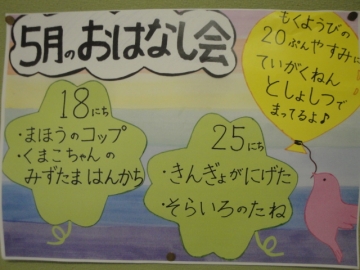 5月のおはなし会
もくようびの
20ぷんやすみに
ていがくねん
としょしつで
まってるよ♪
18にち
・まほうのコップ
・くまこちゃんの
みずたまはんかち
25にち
・きんぎょがにげた
・そらいろのたね